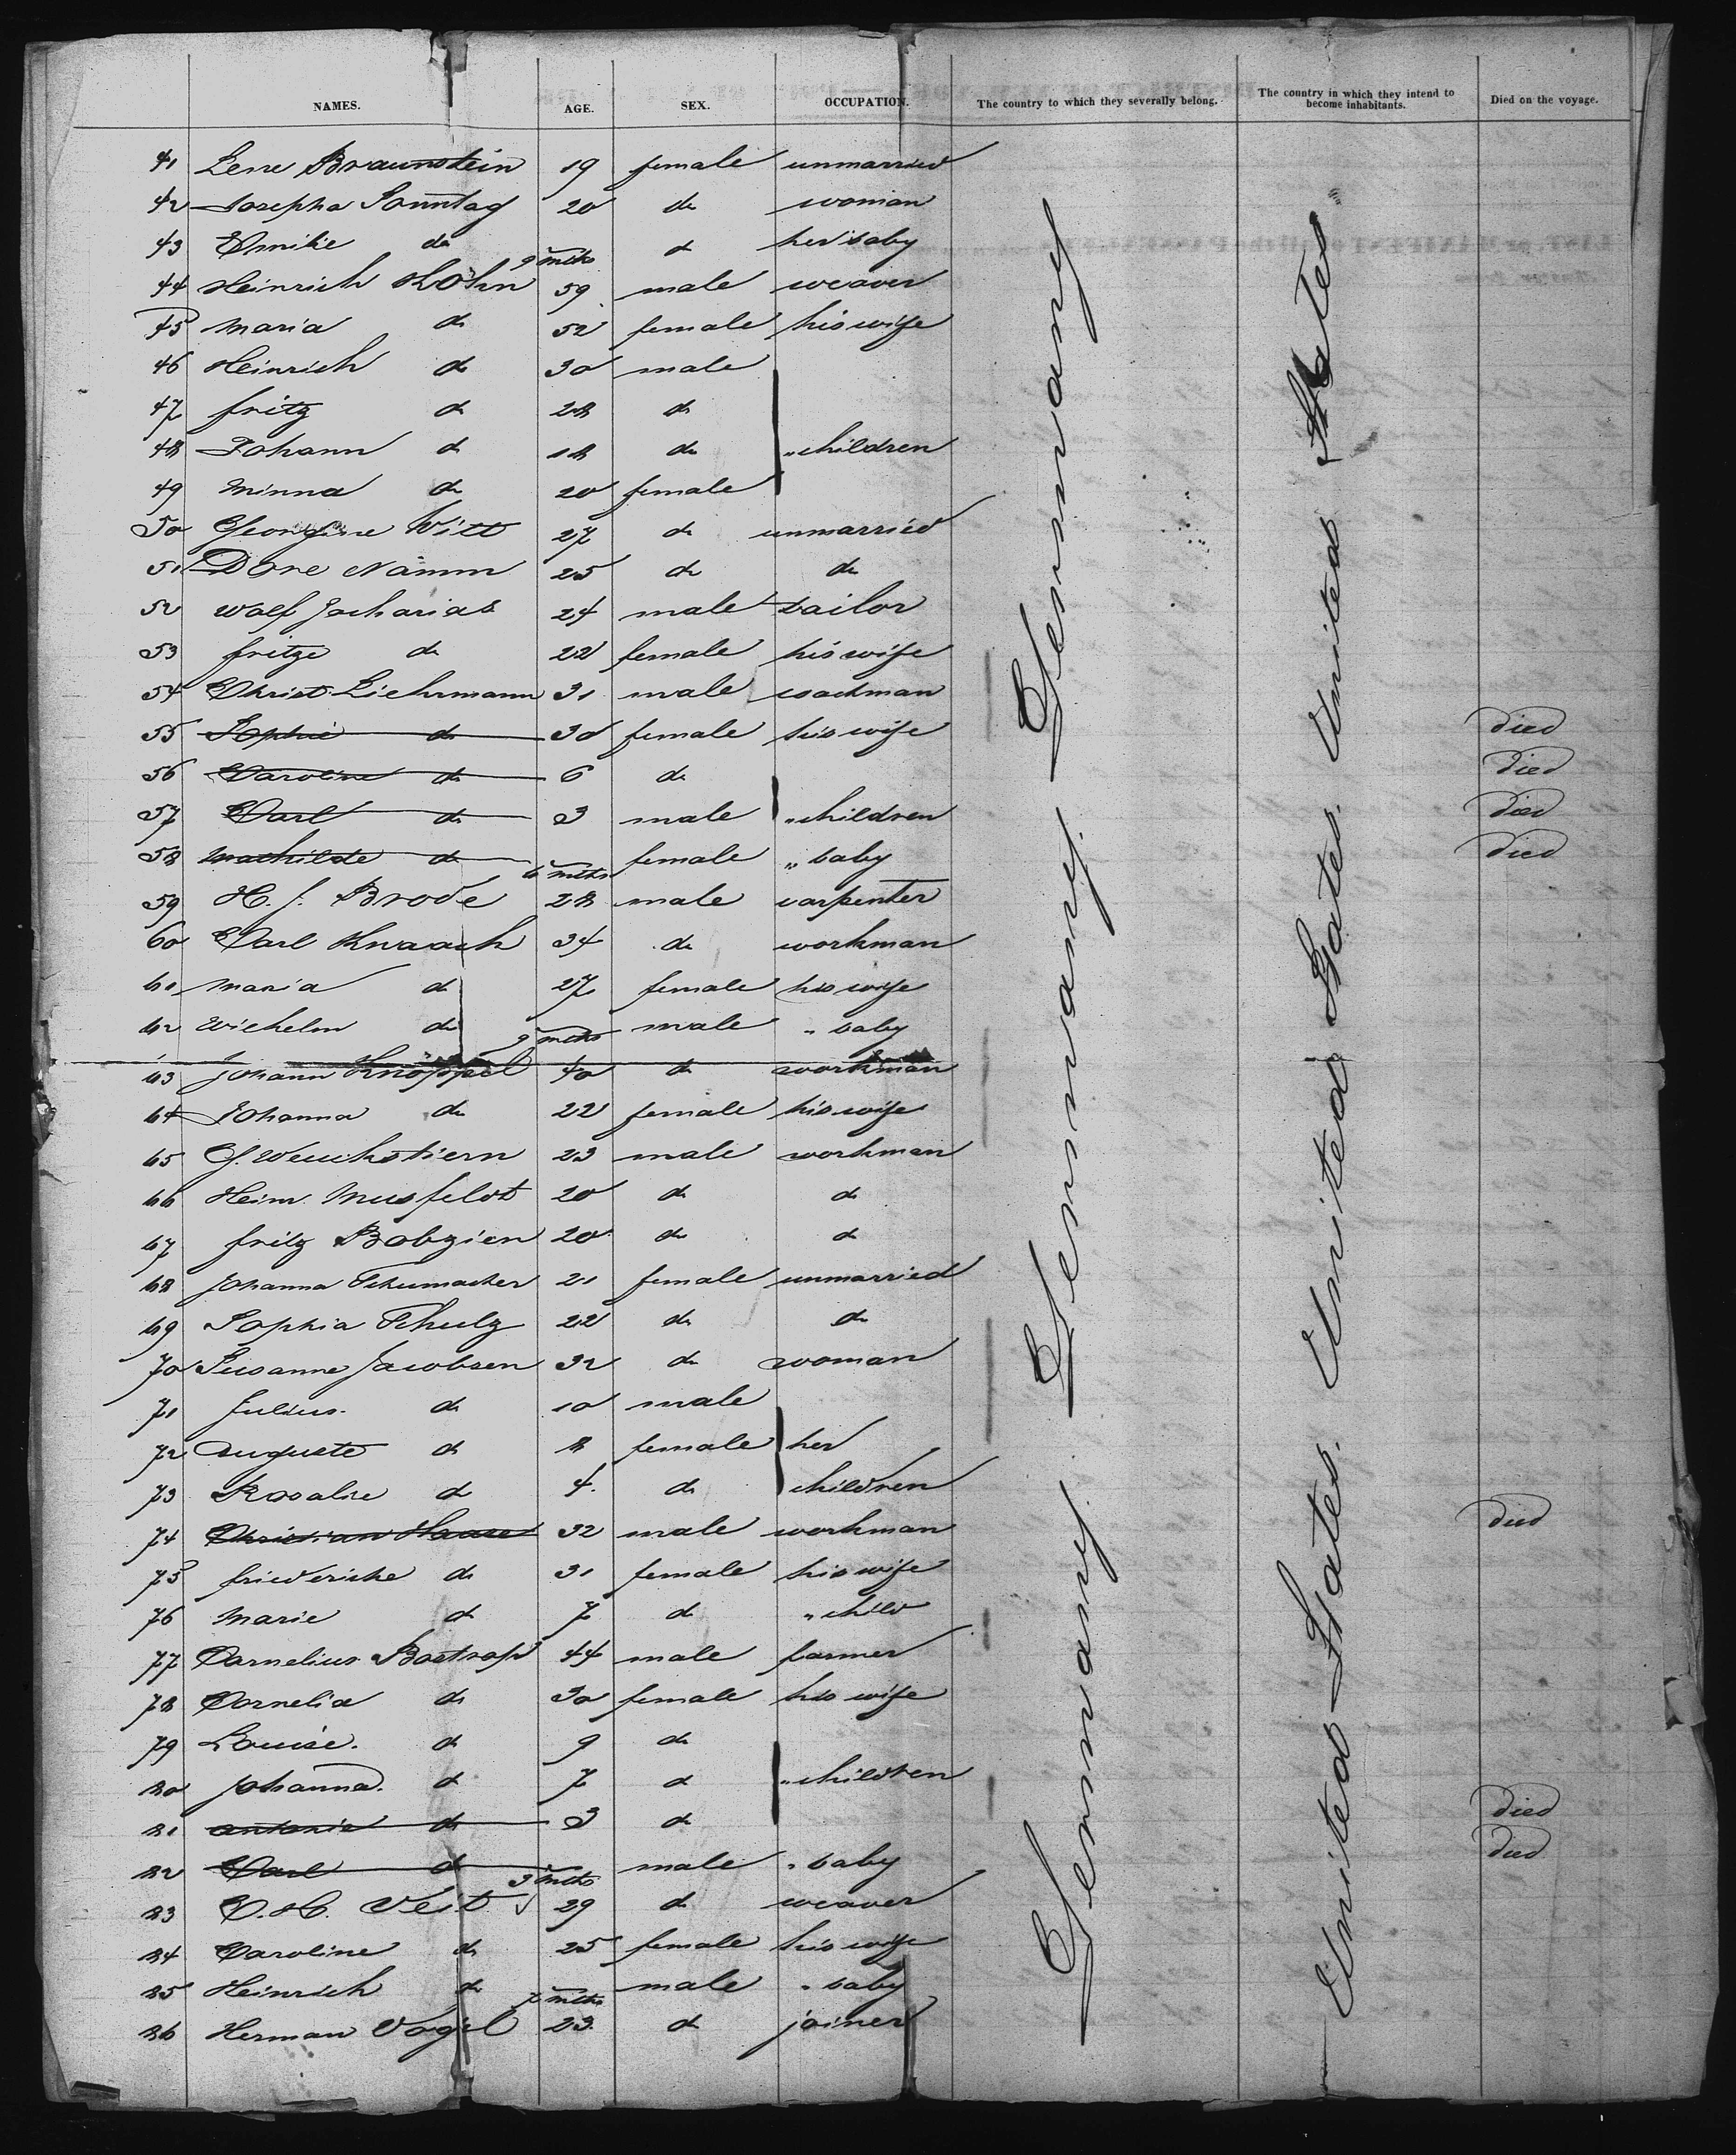 NAMES. AGE. SEX. OCCUPATION. The country to which they severally belong. The country in which they intend to become inhabitants. Died on the voyage.
41 Lene Braunstein 19 female unmarried
42 Josepha Sonntag 20 do woman
43 Emilie do 9 mths do her baby
44 Heinrich Köhn 59 male weaver
45 Maria do 52 female his wife
46 Heinrich do 30 male
47 Fritz do 28 do
48 Johann do 18 do " children
49 Minna do 20 female
50 Georgine Witt 27 do unmarried
51 Dore Namm 25 do do
52 Wolf Zacharias 24 male tailor
53 Fritze do 22 female his wife
54 Christ. Liehrmann 31 male coachman
55 Sophie do 30 female his wife died
56 Caroline do 6 do died
57 Carl do 3 male " children died
58 Mathilde do 6 mths female " baby died
59 H. J. Brode 28 male carpenter
60 Carl Knaack 34 do workman
61 Maria do 27 female his wife
62 Wichelm do 9 mths male " baby
63 Johann Knöppel 40 do workman
64 Johanna do 22 female his wife
65 G. Weuchstiern 23 male workman
66 Heinr. Musfeldt 20 do do
67 Fritz Bobzien 20 do do
68 Johanna Schumacher 21 female unmarried
69 Sophia Schulz 22 do do
70 Susanne Jacobsen 32 do woman
71 Julius do 10 male
72 Auguste do 8 female her
73 Rosalie do 4 do children
74 Christian Haase 32 male workman died
75 Friederike do 31 female his wife
76 Marie do 7 do " child
77 Cornelius Bostrop 44 male farmer
78 Cornelia do 30 female his wife
79 Louise do 9 do
80 Johanna do 7 do " children
81 Antonie do 3 do died
82 Carl do 3 mths male " baby died
83 C. H. Veit 29 do weaver
84 Caroline do 25 female his wife
85 Heinrich do 7 mths male " baby
86 Herman Vogel 23 do joiner
Germany Germany. Germany. Germany.
United States. United States. United States. United States